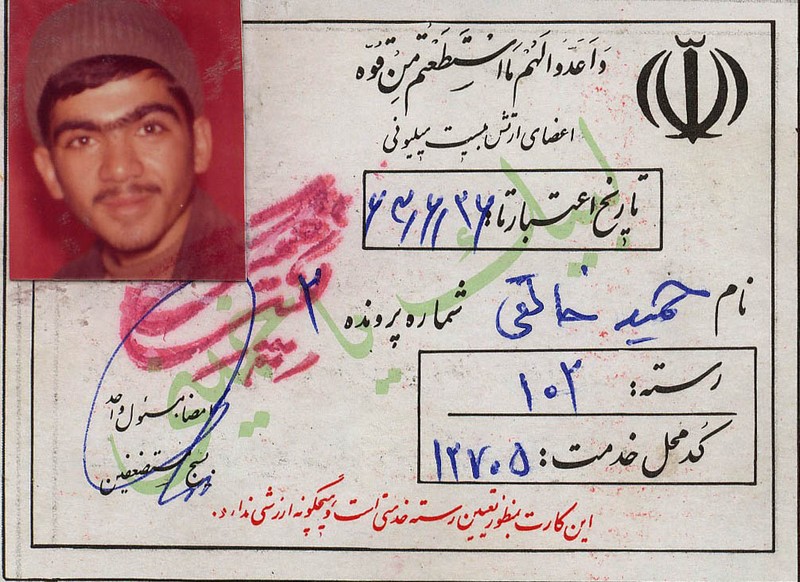 وَاَعَدُّوالَهُم مَااسْتَطَعْتُم مِن قُوَّه
اعضای ارتش بیست میلیونی
تاریخ اعتبار تا:
نام حمید خالقی شماره پرونده ۳
رسته: ۱۰۳
کُد محل خدمت: ۱۲۷۰۵
امضاء مسئول واحد
بسیج مستضعفین
این کارت بمنظور تعیین رسته خدمتی است و هیچگونه ارزشی ندارد.
لبیک یا خمینی